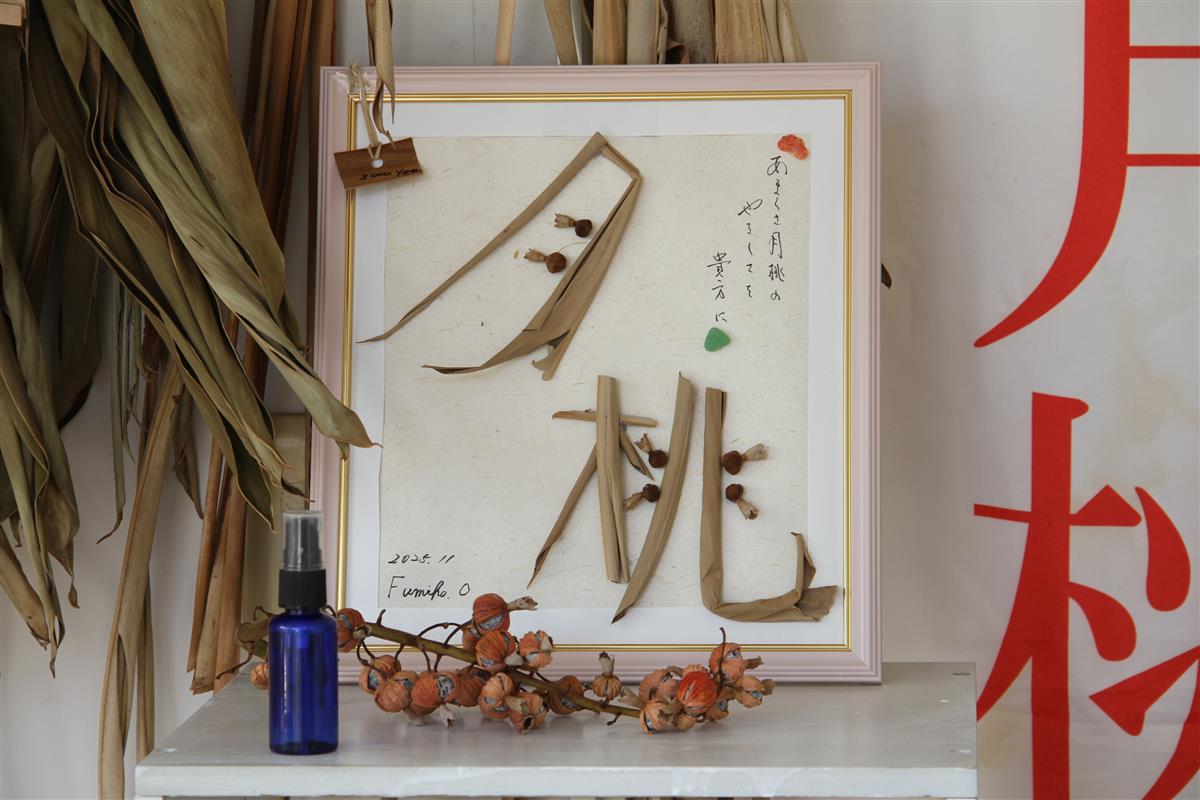 月桃
あまくさ月桃の
やさしさを
貴方に
3000 Yen
2025.11
Fumiko. O
月桃